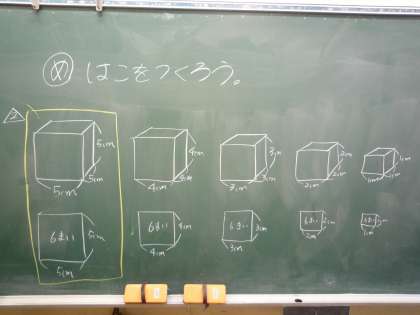 め はこをつくろう。
2
5cm 5cm 5cm
4cm 4cm 4cm
3cm 3cm 3cm
2cm 2cm 2cm
1cm 1cm 1cm
6まい 5cm 5cm
6まい 4cm 4cm
6まい 3cm 3cm
6まい 2cm 2cm
6まい 1cm